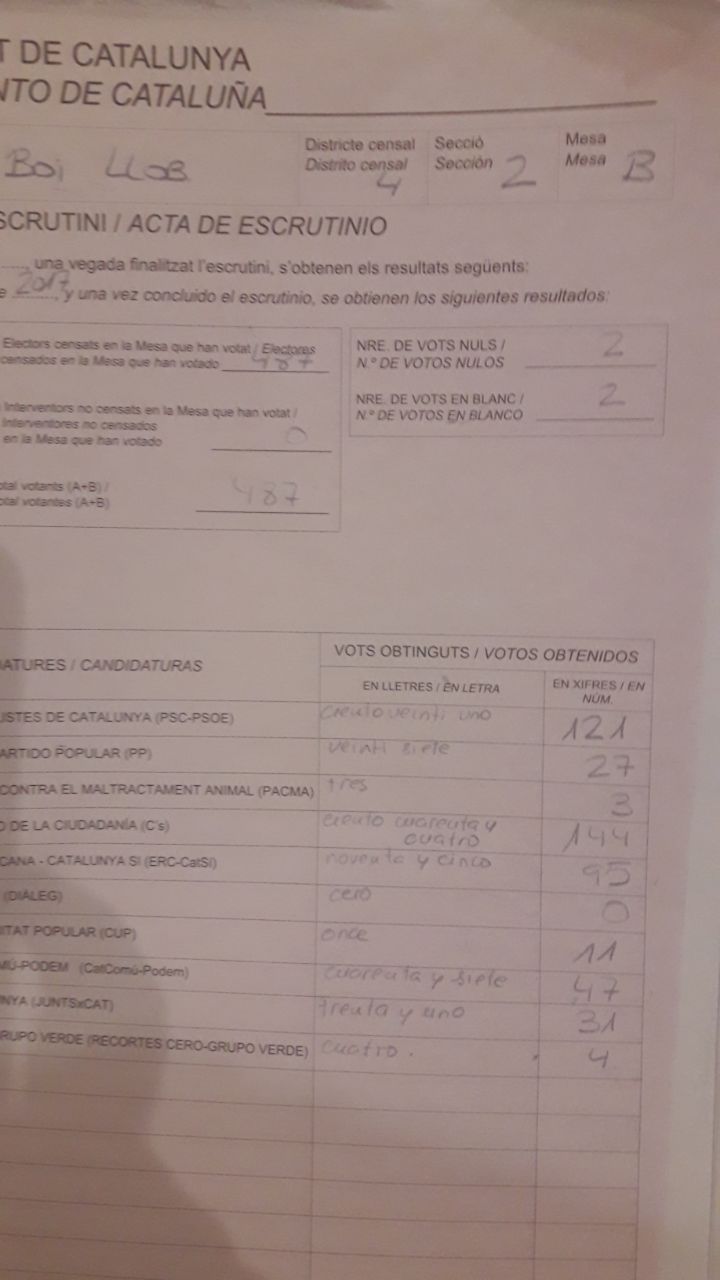 T DE CATALUNYA
NTO DE CATALUÑA
Boi LLOB
Districte censal
Distrito censal
4
Secció
Sección 2
Mesa
Mesa B
SCRUTINI / ACTA DE ESCRUTINIO
......, una vegada finalitzat l'escrutini, s'obtenen els resultats següents:
e 2017, y una vez concluido el escrutinio, se obtienen los siguientes resultados:
Electors censats en la Mesa que han votat / Electores
censados en la Mesa que han votado 487
Interventors no censats en la Mesa que han votat /
Interventores no censados
en la Mesa que han votado 0
otal votants (A+B) /
otal votantes (A+B) 487
NRE. DE VOTS NULS /
N.º DE VOTOS NULOS 2
NRE. DE VOTS EN BLANC /
N.º DE VOTOS EN BLANCO 2
ATURES / CANDIDATURAS
VOTS OBTINGUTS / VOTOS OBTENIDOS
EN LLETRES / EN LETRA
EN XIFRES / EN
NÚM.
ISTES DE CATALUNYA (PSC-PSOE) ciento veinti uno 121
ARTIDO POPULAR (PP) veinti siete 27
CONTRA EL MALTRACTAMENT ANIMAL (PACMA) tres 3
O DE LA CIUDADANÍA (C's) ciento cuarenta y
cuatro 144
CANA - CATALUNYA SI (ERC-CatSí) noventa y cinco 95
(DIÀLEG) cero 0
ITAT POPULAR (CUP) once 11
MÚ-PODEM (CatComú-Podem) cuarenta y siete 47
NYA (JUNTSxCAT) treinta y uno 31
RUPO VERDE (RECORTES CERO-GRUPO VERDE) cuatro. 4